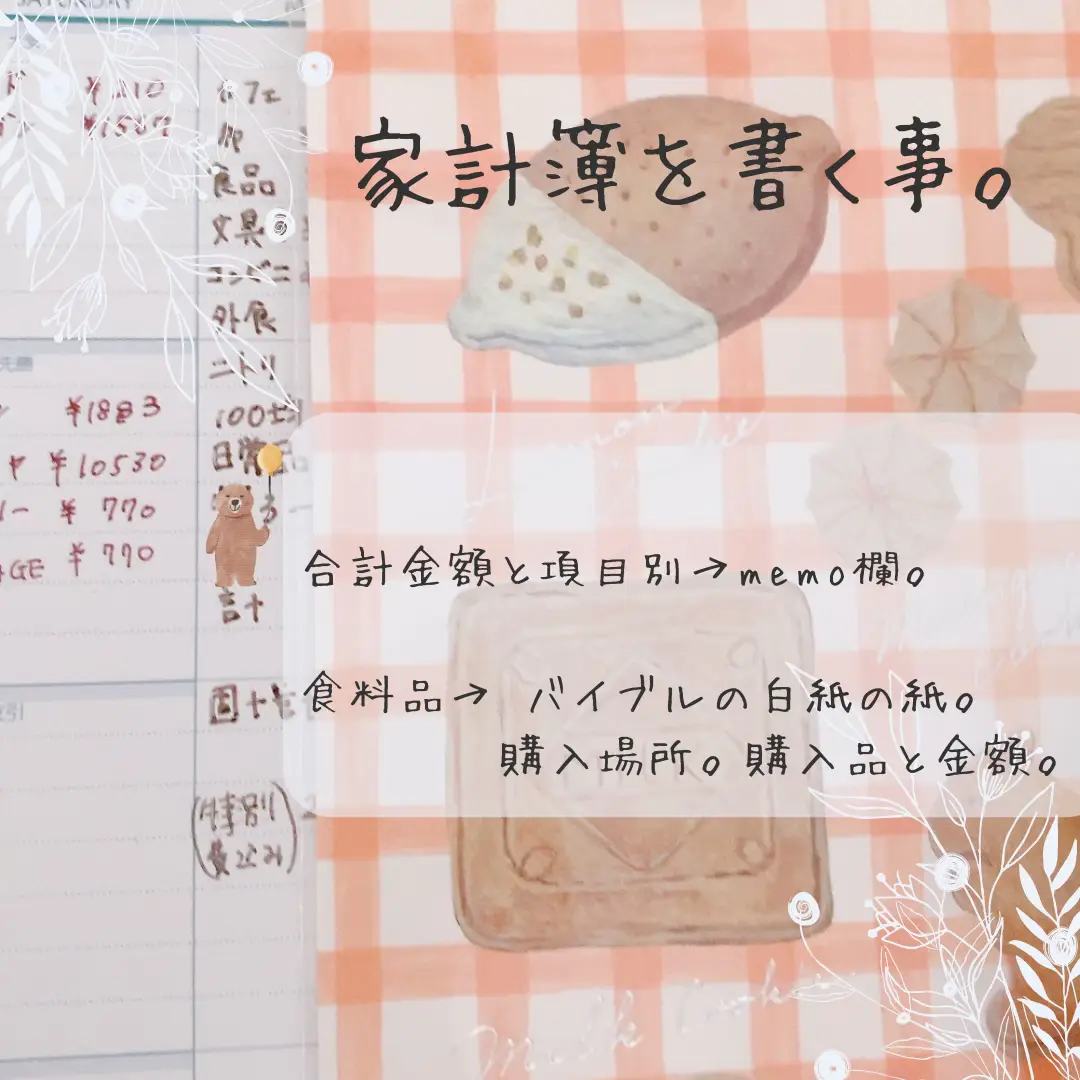 SATURDAY
¥1507
カフェ
食品
文具
コンビニ
外食
ニトリ
100均
日常品
計
¥1883
¥10530
¥770
¥770
(特別
費込み)
家計簿を書く事。
合計金額と項目別→memo欄。
食料品→ バイブルの白紙の紙。
購入場所。購入品と金額。
Lemon Cookie
Milk Cookie